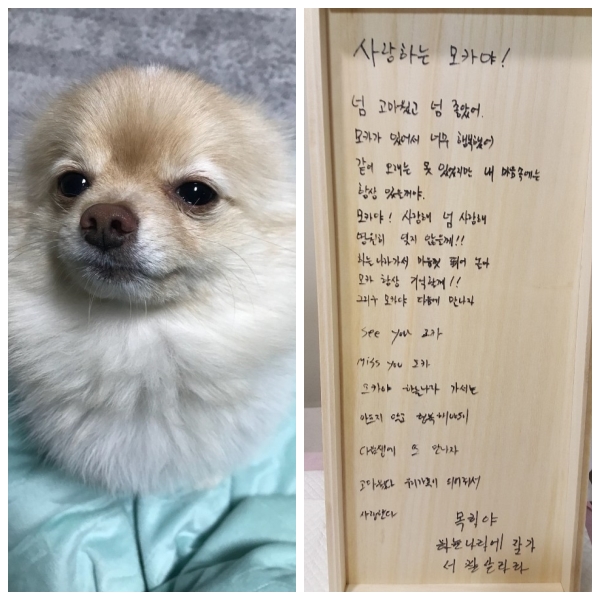 사랑하는 모카야!
넘 고마웠고 넘 좋았어.
모카가 있어서 너무 행복했어
같이 오래는 못 있었지만 내 마음속에는
항상 있을꺼야.
모카야! 사랑해 넘 사랑해
영원히 잊지 않을께!!
하늘나라가서 마음껏 뛰어 놀아
모카 항상 기억할게!!
그리구 모카야 다음에 만나자
See you 모카
Miss you 모카
모카야 하늘나라 가서는
아프지 않고 행복해야되
다음생에 또 만나자
고마웠다 우리가족이 되어줘서
사랑한다
하늘나라에 갈가
서 잘 살아라